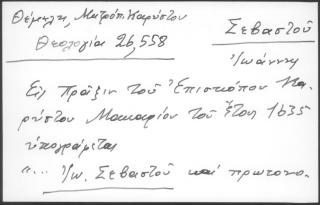 Θέμελη, Μητρόπ. Καρύστου
Θεολογία 26,558
Σεβαστοῦ
Ἰωάννη
Εἰς πρᾶξιν τοῦ Ἐπισκόπου Κα-
ρύστου Μακαρίου τοῦ ἔτους 1635
ὑπογράφεται
"... Ἰω. Σεβαστοῦ καὶ πρωτονο.